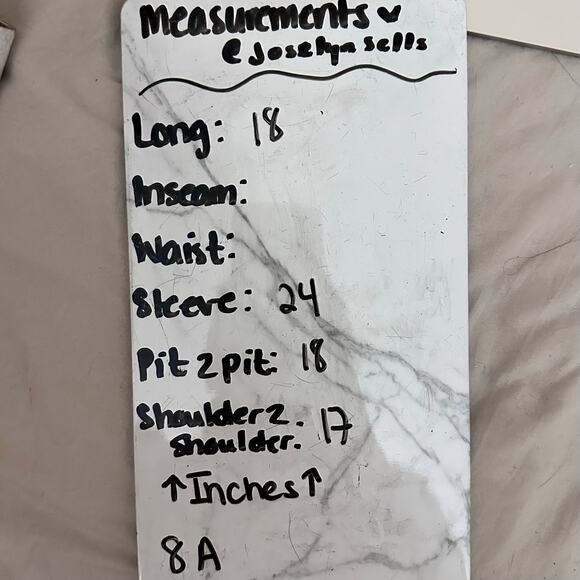 Measurements ♥
@Joselyn Sells
Long: 18
Inseam:
Waist:
Sleeve: 24
Pit 2 pit: 18
Shoulder 2.
Shoulder. 17
↑Inches↑
8A